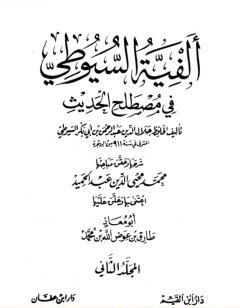 ألفية السيوطي
في مصطلح الحديث
تأليف الحافظ جلال الدين عبد الرحمن بن أبي بكر السيوطي
المتوفى في سنة ٩١١ من الهجرة
شرحها وحقق مباحثها
محمد محيي الدين عبد الحميد
اعتنى بها وعلق عليها
أبو معاذ
طارق بن عوض الله بن محمد
المجلد الثاني
دار ابن القيم
دار ابن عفان